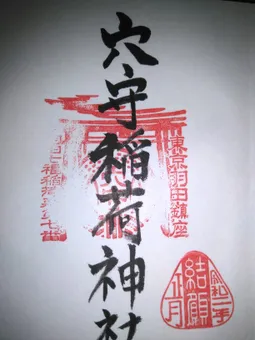 穴守稲荷神社
東京羽田鎮座
令和二年
結願
正月